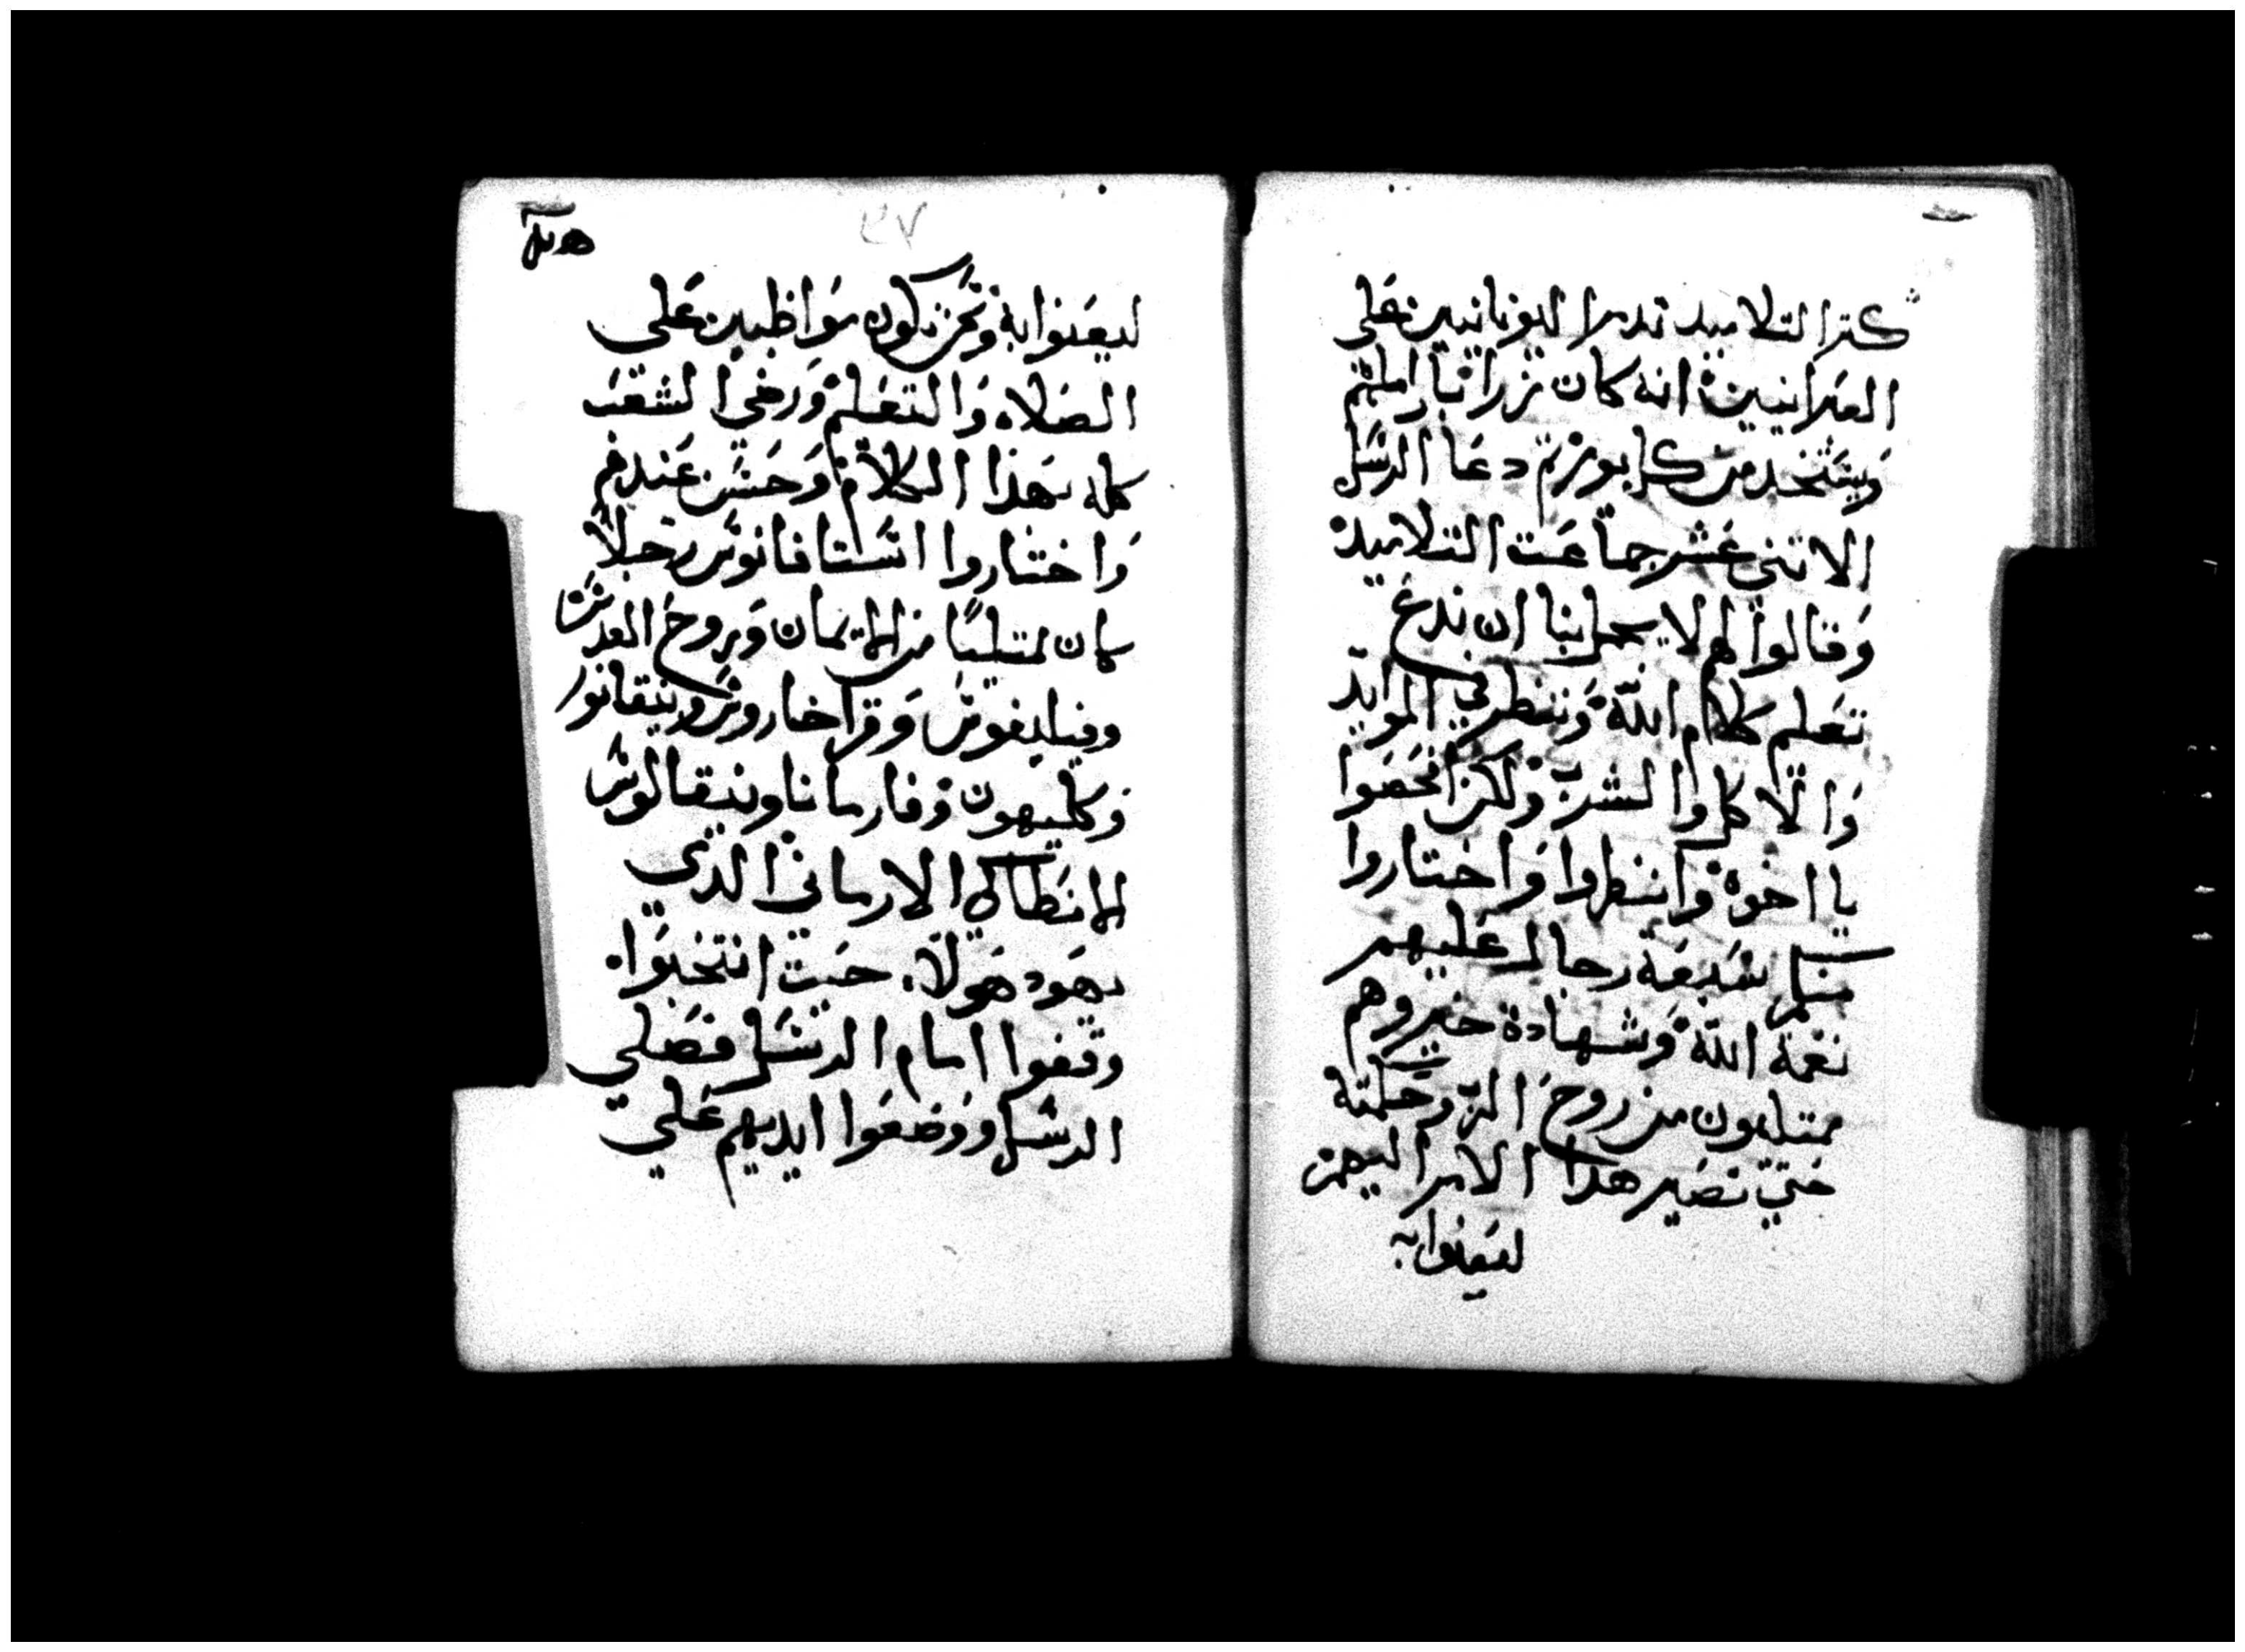 كترا لتلاميد تدمرا ليونانيين على
العبرانيين انه كان تزرا باراملهم
ويستخدمن كل يوم تم دعا الرسل
الاتنى عشر جماعت التلاميد
وقالوا لهم لا يحمل بنا ان ندع
تعلم كلام الله وننظر في الموايد
والاكل والشرب ولكن افحصوا
يا اخوة وانظروا واختاروا
منكم سبعة رجال عليهم
نعمة الله وشهادة خير وهم
ممتليون من روح الرب وحكمته
حتي نصير هدا الامر اليهم
ليعنوا به
٣٧
ليعنوا به ونحن نكون مواظبين على
الصلاه والتعلم ورضي الشعب
كله بهذا الكلام وحسن عندهم
واختاروا استافانوس رجلا
كان ممتليا من الايمان وبروح القدس
وفيليفوس وقراخاروس ونيقانور
وكليمون وفارمانا ونيقالوس
الانطاكي الارماني الدي
يهود هولاء حيت انتخبواه
وقفوا امام الرسل فصلي
الرسل ووضعوا ايديهم علي